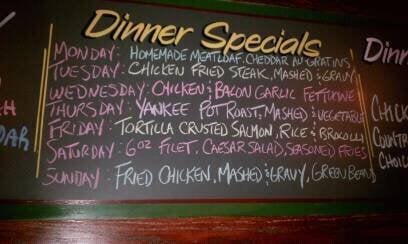 Dinner Specials
MONDAY: HOMEMADE MEATLOAF, CHEDDAR AU GRATINS
TUESDAY: CHICKEN FRIED STEAK, MASHED & GRAVY
WEDNESDAY: CHICKEN & BACON GARLIC FETTUCINE
THURSDAY: YANKEE POT ROAST, MASHED & VEGETABLE
FRIDAY: TORTILLA CRUSTED SALMON, RICE & BROCOLLI
SATURDAY: 6OZ FILET, CAESAR SALAD, SEASONED FRIES
SUNDAY: FRIED CHICKEN, MASHED & GRAVY, GREEN BEANS
Dinn
CHICK
COUNTR
CHOIC
DAR